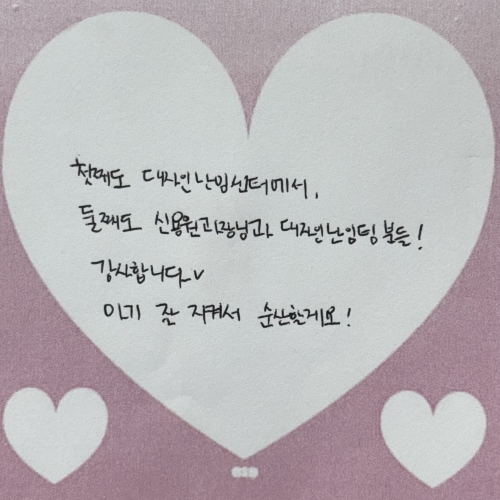 첫째도 대자인난임센터에서,
둘째도 신용원과장님과 대자인난임팀분들!
감사합니다♡
아기 잘 지켜서 순산할게요!